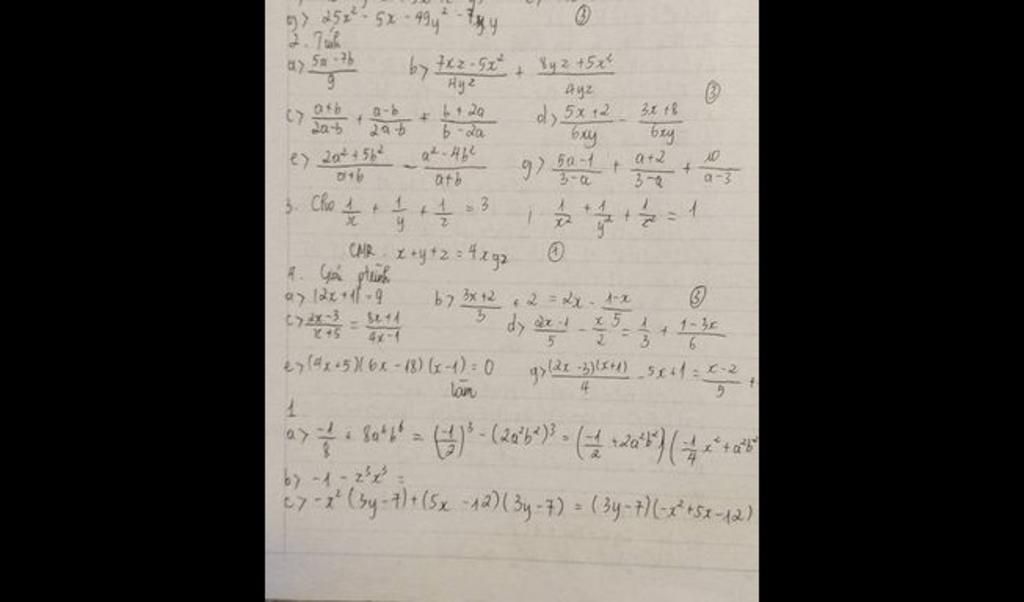 g> 25x² - 5x - 49y² - 7y ③
2. Tính
a> (5a - 7b)/9 b> (7xz - 5x²)/(4yz) + (8yz + 5x²)/(4yz) ③
c> (a+b)/(2a-b) + (a-b)/(2a-b) + (b+2a)/(b-2a) d> (5x+2)/(6xy) - (3x+8)/(6xy)
e> (2a²+5b²)/(a+b) - (a²-4b²)/(a+b) g> (5a-1)/(3-a) + (a+2)/(3-a) + 10/(a-3)
3. Cho 1/x + 1/y + 1/z = 3 ; 1/x² + 1/y² + 1/z² = 1
CMR: x+y+z = 4xyz ①
4. Giải ptrình
a> |2x+1| = 9 b> (3x+2)/3 + 2 = 2x - (1-x)/5 ③
c> (2x-3)/(x+5) = (3x+1)/(4x-1) d> (2x-1)/5 - x/2 = 1/3 + (1-3x)/6
e> (4x+5)(6x-18)(x-1) = 0 g> ((2x-3)(x+1))/4 - 5x+1 = (x-2)/5 +
Làm
1.
a> -1/8 + 8a⁶b⁶ = (-1/2)³ - (2a²b²)³ = (-1/2 + 2a²b²)(-1/4 x² + a²b²
b> -1 - z³x³ =
c> -x²(3y-7) + (5x-12)(3y-7) = (3y-7)(-x²+5x-12)